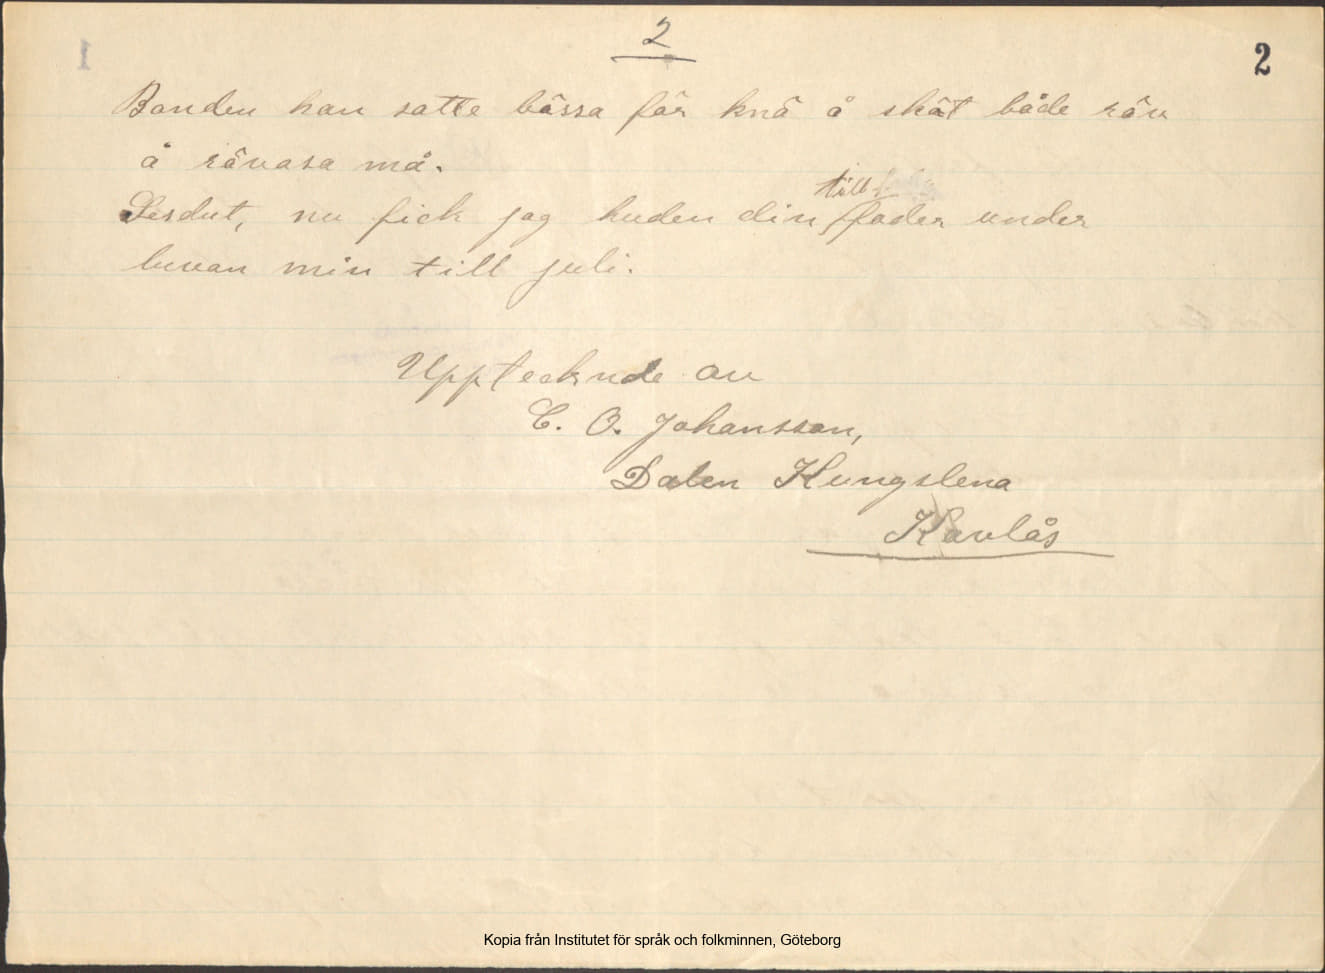 2
2
Bonden han satte bössa för knä å sköt både räv
å rävasa må.
Serdut, nu fick jag huden din till foder under
luvan min till juli.
Upptecknde av
C. O. Johansson,
Dalen Kungslena
Kavlås
Kopia från Institutet för språk och folkminnen, Göteborg